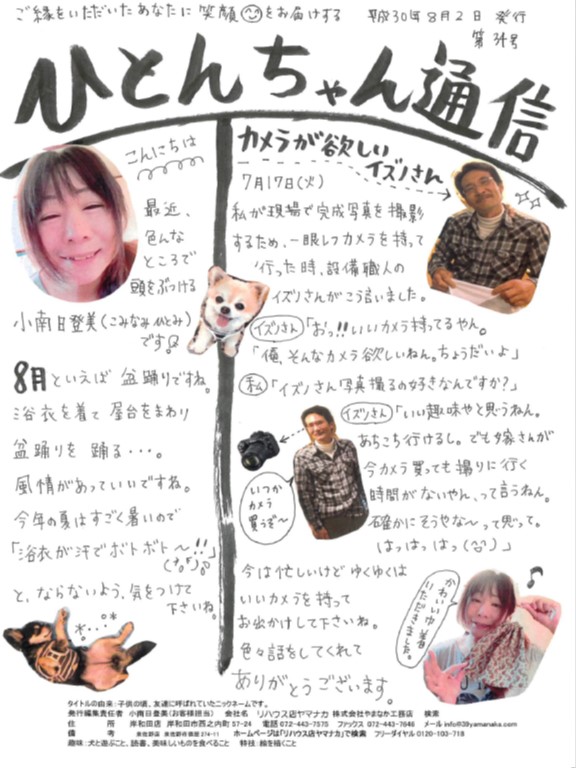 ご縁をいただいたあなたに 笑顔をお届けする
平成30年8月2日 発行
第34号
ひとんちゃん通信
こんにちは
最近、
色んな
ところで
頭をぶつける
小南日登美(こみなみひとみ)
です。
8月といえば 盆踊りですね。
浴衣を着て 屋台をまわり
盆踊りを 踊る・・・。
風情があっていいですね。
今年の夏はすごく暑いので
「浴衣が汗でボトボト〜!!」
と、ならないよう、気をつけて
下さいね。
カメラが欲しい
イズノさん
7月17日(火)
私が現場で完成写真を撮影
するため、一眼レフカメラを持って
行った時、設備職人の
イズノさんがこう言いました。
イズノさん 「おっ!!いいカメラ持ってるやん。
「俺、そんなカメラ欲しいねん。ちょうだいよ」
私 「イズノさん写真撮るの好きなんですか?」
イズノさん 「いい趣味やと思うねん。
あちこち行けるし。でも嫁さんが
今カメラ買っても撮りに行く
時間がないやん、って言うねん。
確かにそうやな〜って思って。
はっはっはっ」
いつか
カメラ
買うぞ〜
今は忙しいけど ゆくゆくは
いいカメラを持って
お出かけして下さいね。
色々話をしてくれて
ありがとうございます。
かわいいゆ
いただきました。
タイトルの由来:子供の頃、友達に呼ばれていたニックネームです。
発行編集責任者 小南日登美(お客様担当) 会社名 リハウス店ヤマナカ 株式会社やまなか工務店 検索
住 所 岸和田店 岸和田市西之内町57-24 電話 072-443-7575 ファックス 072-443-7646 メール info@39yamanaka.com
備 考 泉佐野店 泉佐野市鶴原 274-11 ホームページは「リハウス店ヤマナカ」で検索 フリーダイヤル 0120-103-718
趣味:犬と遊ぶこと、読書、美味しいものを食べること 特技:顔を描くこと